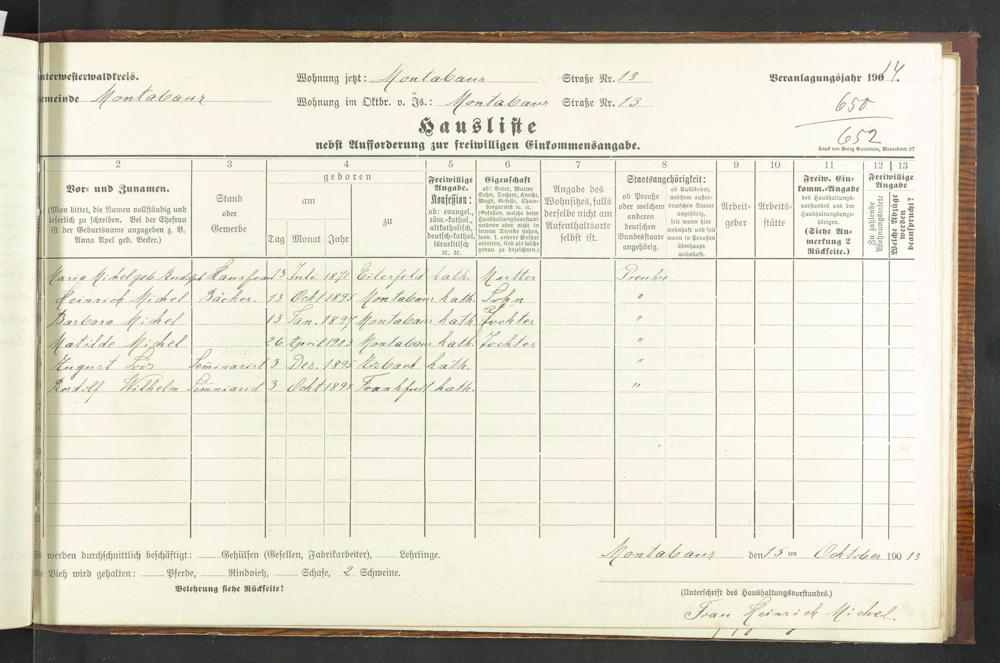 nterwesterwaldkreis. Wohnung jetzt: Montabaur Straße Nr. 13 Veranlagungsjahr 190 14.
emeinde Montabaur Wohnung im Oktbr. v. Js.: Montabaur Straße Nr. 13 650
Hausliste 652
nebst Aufforderung zur freiwilligen Einkommensangabe. Druck von Georg Sauerborn, Montabaur. 07
2 3 4 5 6 7 8 9 10 11 12 13
Vor- und Zunamen.
(Man bittet, die Namen vollständig und
leserlich zu schreiben. Bei der Ehefrau
ist der Geburtsname anzugeben z. B.
Anna Apel geb. Becker.)
Stand
oder
Gewerbe
geboren
am
zu
Tag Monat Jahr
Freiwillige
Angabe.
Konfession:
ob: evangel.,
röm.-kathol.,
altkatholisch,
deutsch-kathol.
israelitisch
ec. ec.
Eigenschaft
ob: Vater, Mutter
Sohn, Tochter, Knecht,
Magd, Geselle, Cham-
bregarnist ec. ec.
(Gesellen, welche beim
Haushaltungsvorstand
wohnen aber nicht in
seinem Dienste stehen,
sond. b. andern Meister
arbeiten, sind als solche
genau zu bezeichnen.)
Angabe des
Wohnsitzes, falls
derselbe nicht am
Aufenthaltsorte
selbst ist.
Staatsangehörigkeit:
ob Preuße
oder welchem
anderen
deutschen
Bundesstaate
angehörig.
ob Ausländer,
welchem außer-
deutschen Staate
angehörig,
seit wann hier
wohnhaft und seit
wann in Preußen
überhaupt
wohnhaft.
Arbeit-
geber
Arbeits-
stätte
Freiw. Ein-
komm.-Angabe
des Haushalts-
vorstandes und der
Haushaltungsange-
hörigen.
(Siehe An-
merkung 2
Rückseite.)
Freiwillige
Angabe
Zu zahlende
Wohnungsmiete
Welche Abzüge
werden
beansprucht?
Maria Michel geb. Hausfrau 13 Juli 1871 Eilerfeld kath. Mutter Preuße
Heinrich Michel Bäcker. 13 Okt 1895 Montabaur kath. Sohn "
Barbara Michel 13 Jan. 1897 Montabaur kath. Tochter "
Matilde Michel 26 April 1903 Montabaur kath. Tochter "
August Loos Seminarist 3 Dez. 1895 kath. "
Rudolf Wilhelm Seminarist 3 Okt 1895 Frankfurt kath. "
werden durchschnittlich beschäftigt: Gehülfen (Gesellen, Fabrikarbeiter), Lehrlinge. Montabaur den 15 ten Oktober 190 13
Vieh wird gehalten: Pferde, Rindvieh, Schafe, 2 Schweine.
Belehrung siehe Rückseite!
(Unterschrift des Haushaltungsvorstandes.)
Frau Heinrich Michel.